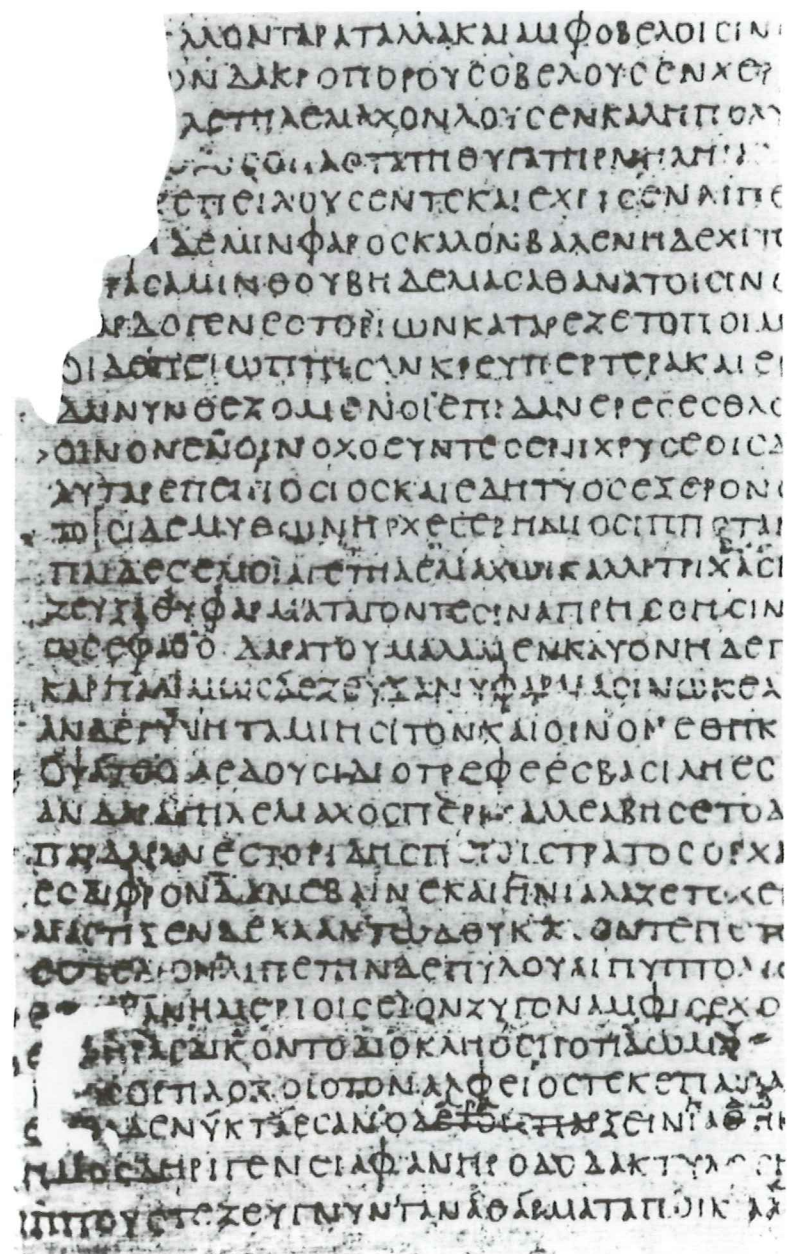 ΛΛΟΝΤΑΡΑΤΑΛΛΑΚΑΙΑΜΦΟΒΕΛΟΙCΙΝ
ΩΝΔΑΚΡΟΠΟΡΟΥCΟΒΕΛΟΥCΕΝΧΕΡ
ΛΕΤΗΛΕΜΑΧΟΝΛΟΥCΕΝΚΑΛΗΠΟΛΥ
ΟΠΛΟΤΑΤΗΘΥΓΑΤΗΡΝΗΛΗΙ
ΕΠΕΙΛΟΥCΕΝΤΕΚΑΙΕΧΡΙCΕΝΛΙΠΕ
ΙΔΕΜΙΝΦΑΡΟCΚΑΛΟΝΒΑΛΕΝΗΔΕΧΙΤ
ΡΑCΑΜΙΝΘΟΥΒΗΔΕΜΑCΑΘΑΝΑΤΟΙCΙΝΟ
ΑΡΔΟΓΕΝΕCΤΟΡΙΩΝΚΑΤΑΡΕΖΕΤΟΠΟΙΜ
ΟΙΔΕΠΕΙΩΠΤΗCΑΝΚΡΕΥΠΕΡΤΕΡΑΚΑΙΕ
ΔΑΙΝΥΝΘΕΖΟΜΕΝΟΙΕΠΙΔΑΝΕΡΕCΕCΘΛΟ
>ΟΙΝΟΝΕΝΟΙΝΟΧΟΕΥΝΤΕCΕΝΙΧΡΥCΕΟΙCΔ
ΑΥΤΑΡΕΠΕΙΠΟCΙΟCΚΑΙΕΔΗΤΥΟCΕΞΕΡΟΝ
ΤΟΙCΙΔΕΜΥΘΩΝΗΡΧΕΓΕΡΗΝΙΟCΙΠΠΟΤΑΝ
ΠΑΙΔΕCΕΜΟΙΑΓΕΤΗΛΕΜΑΧΩΙΚΑΛΛΙΤΡΙΧΑC
ΖΕΥΞΑΘΥΦΑΡΜΑΤΑΓΟΝΤΕCΙΝΑΠΡΗCCΗCΙΝ
ΩCΕΦΑΘΟΙΔΑΡΑΤΟΥΜΑΛΑΜΕΝΚΛΥΟΝΗΔΕΠ
ΚΑΡΠΑΛΙΜΩCΔΕΖΕΥΞΑΝΥΦΑΡΜΑCΙΝΩΚΕΑ
ΑΝΔΕΓΥΝΗΤΑΜΙΗCΙΤΟΝΚΑΙΟΙΝΟΝΕΘΗΚ
ΟΨΑΤΕΟΙΑΕΔΟΥCΙΔΙΟΤΡΕΦΕΕCΒΑCΙΛΗΕC
ΑΝΔΑΡΑΤΗΛΕΜΑΧΟCΠΕΡΙΚΑΛΛΕΑΒΗCΕΤΟΔ
ΠΑΡΔΑΡΑΝΕCΤΟΡΙΔΗCΠΙCΙCΤΡΑΤΟCΟΡΧΑ
ΕCΔΙΦΡΟΝΔΑΝΕΒΑΙΝΕΚΑΙΗΝΙΑΛΑΖΕΤΟΧΕ
ΜΑCΤΙΞΕΝΔΕΛΑΑΝΤΩΔΟΥΚΑ
ΕCΠΕΔΙΟΝΛΙΠΕΤΗΝΔΕΠΥΛΟΥΑΙΠΥΠΤΟΛΙΕ
ΠΑΝΗΜΕΡΙΟΙCΕΙΟΝΖΥΓΟΝΑΜΦΙCΕΧΟ
ΦΗΡΑCΔΙΚΟΝΤΟΔΙΟΚΛΗΟCΠΟΤΙΔΩΜΑ
ΟΡΤΙΛΟΧΟΙΟΤΟΝΑΛΦΕΙΟCΤΕΚΕΠΑΙΔΑ
ΔΕΝΥΚΤΑΕCΑΝΟΔΕΤΟΙCΠΑΡΞΕΙΝΙΑΘΗΚ
ΗΜΟCΔΗΡΙΓΕΝΕΙΑΦΑΝΗΡΟΔΟΔΑΚΤΥΛΟCΗ
ΙΠΠΟΥCΤΕΖΕΥΓΝΥΝΤΑΝΑΘΑΡΜΑΤΑΠΟΙΚΙΛΑ